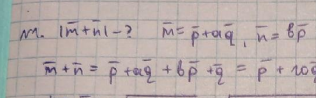 m. |m̅+n̅|-? m̅=p̅+aq̅, n̅=bp̅
m̅+n̅=p̅+aq̅+bp̅+q̅=p̅+10q̅